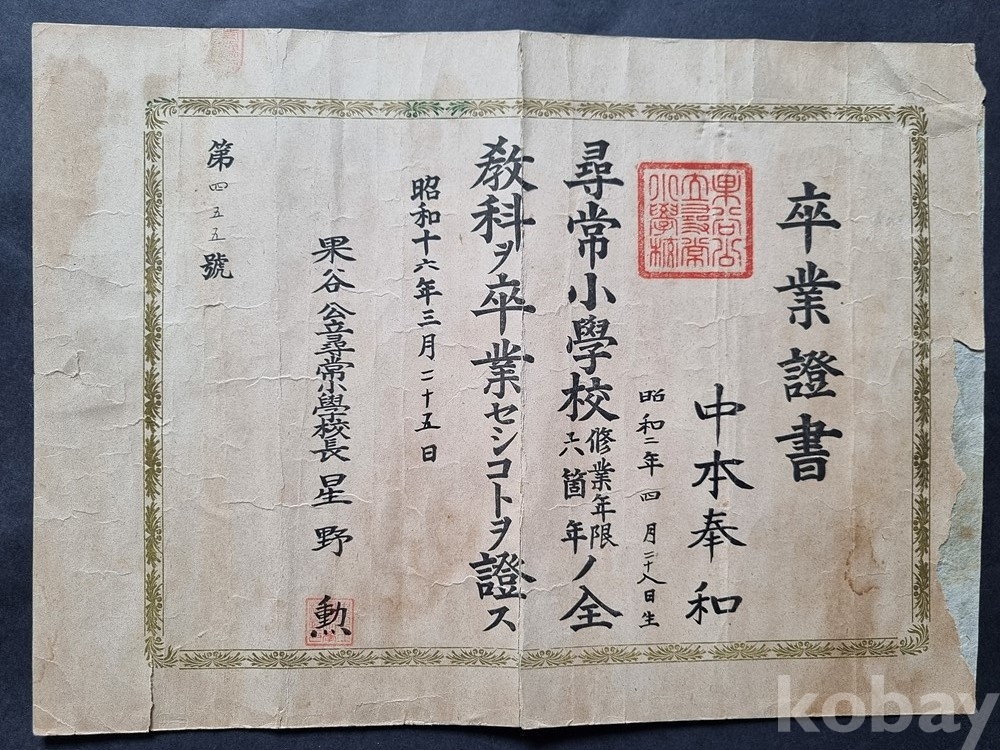 卒業證書
中本奉和
昭和二年四月二十八日生
尋常小學校修業年限六箇年ノ全
教科ヲ卒業セシコトヲ證ス
昭和十六年三月二十五日
果谷公立尋常小學校長 星野 勲
第四五五號
果谷公立尋常小學校
kobay